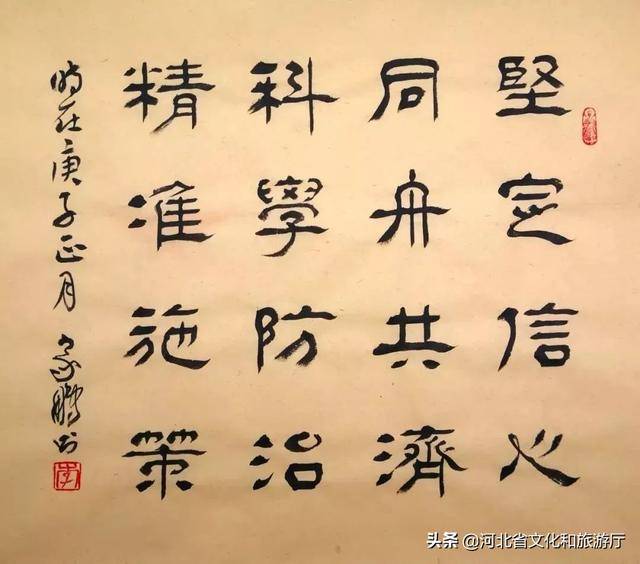 堅定信心
同舟共濟
科學防治
精准施策
時在庚子正月家鵬书
头条 @河北省文化和旅游厅